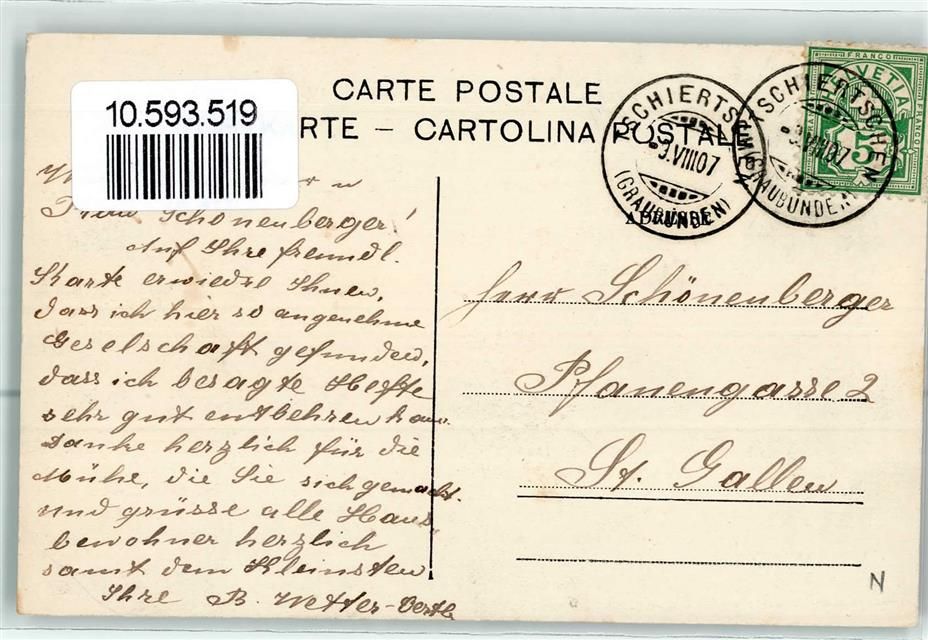 CARTE POSTALE
10.593.519
RTE – CARTOLINA POSTALE
TSCHIERTSCHEN
-9.VIII.07
(GRAUBÜNDEN)
TSCHIERTSCHEN
VIII.07
(GRAUBÜNDEN)
FRANCO
HELVETIA
5
Frau Schönenberger!
Auf Ihre freundl.
Karte erwiedre Ihnen,
dass ich hier so angenehme
Geselschaft gefunden,
dass ich besagte Hefte
sehr gut entbehren kann.
Danke herzlich für die
Mühe, die Sie sich gemacht.
und grüsse alle Haus
bewohner herzlich
samt dem Kleinsten
Ihre B. Wetter-
Herrn Schönenberger
Pfanengasse 2
St. Gallen
N